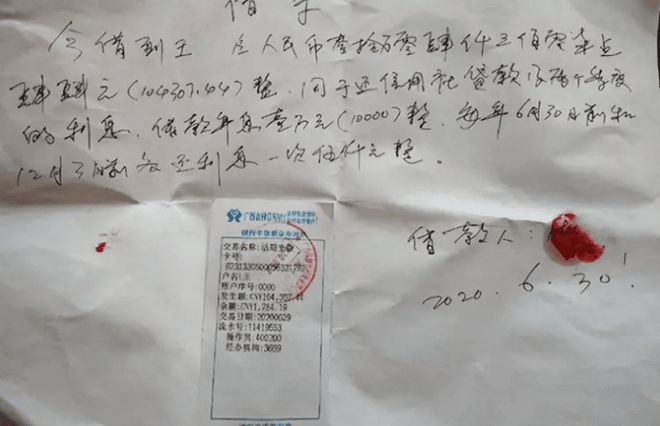 借字
今借到王 庄人民币壹拾万零肆仟三佰零柒点
肆肆元（104307.44）整．用于还信用社贷款及两个季度
的利息．借款年息壹万元（10000）整．每年6月30日前和
12月31日前各还利息一次伍仟元整。
借款人：
2020.6.30！
广西农村信用社
交易名称：活期支取
卡号：
户名：王
账户序号：0000
发生额：CNY104,307.44
余额：CNY1,784.19
交易日期：20200629
流水号：11419553
操作员：400200
经办机构：3669